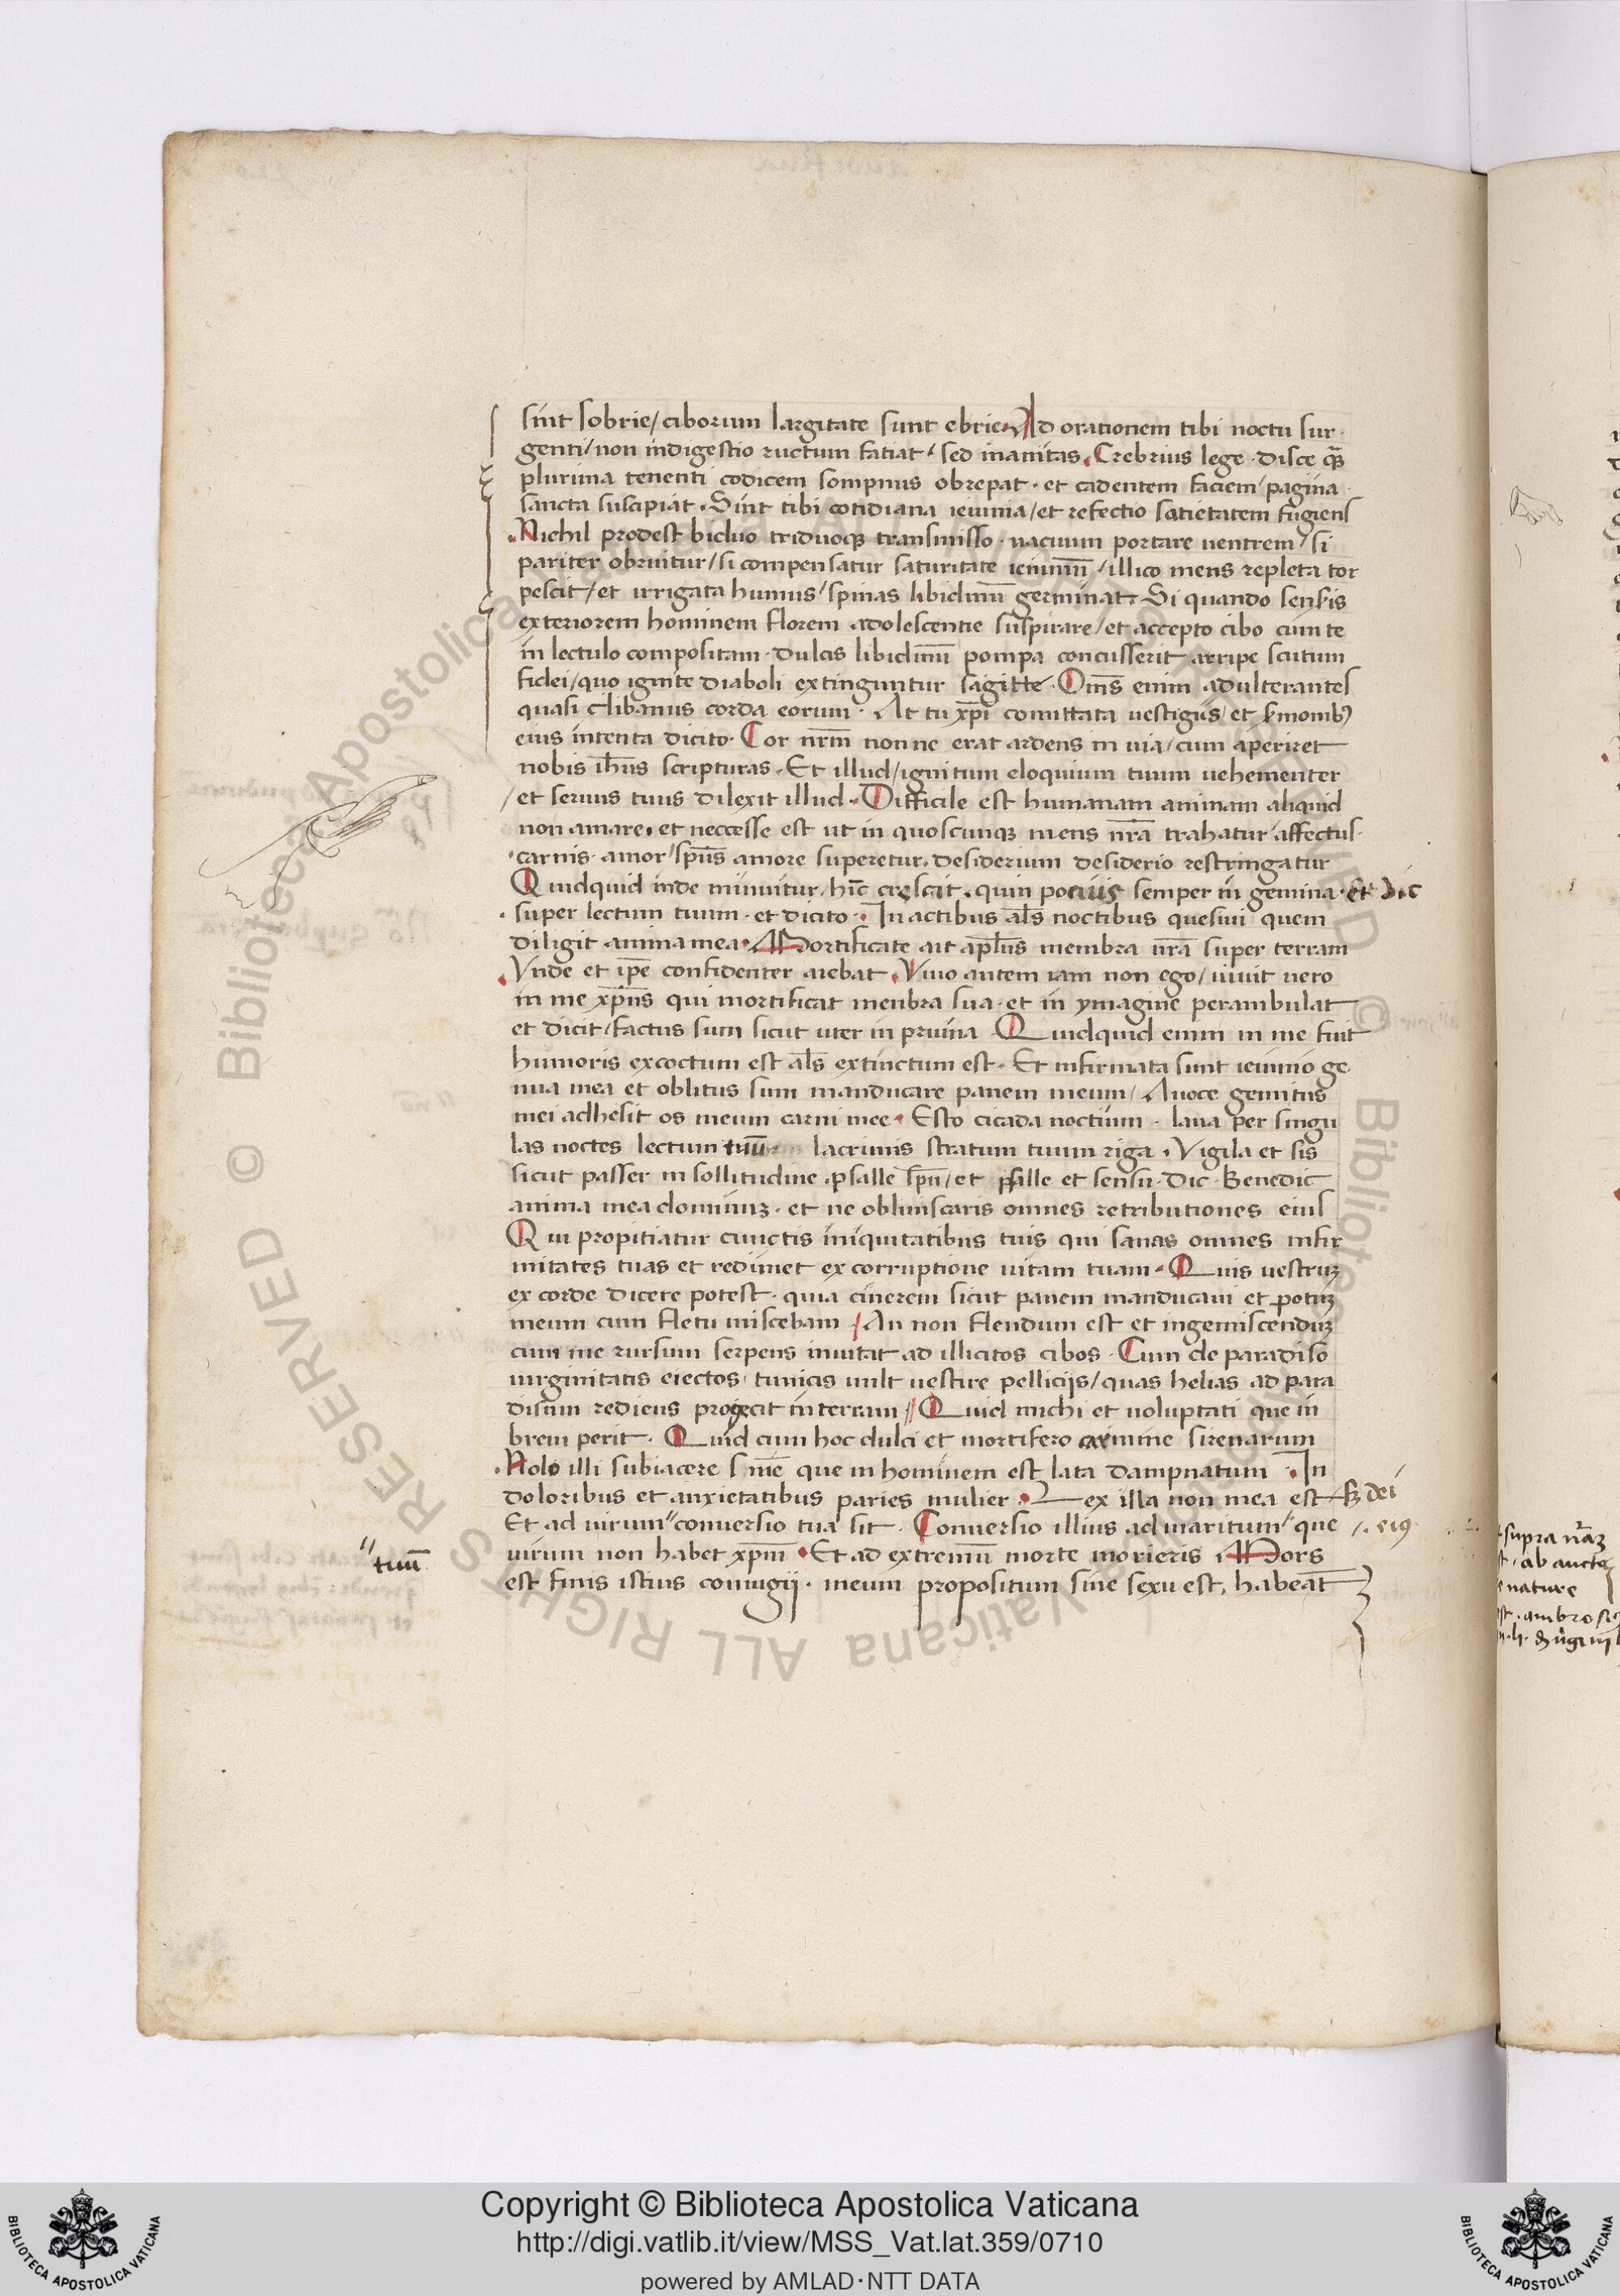 sint sobrie / ciborum largitate sunt ebrie. Ad orationem tibi noctu sur
genti / non indigestio ructum fatiat / sed inanitas. Crebrius lege · disce q̃
plurima tenenti codicem sompnus obrepat · et cadentem faciem / pagina
sancta suscipiat · Sint tibi cotidiana ieiunia / et refectio satietatem fugiens
Nichil prodest biduo triduoqꝫ transmisso · uacuum portare uentrem / si
pariter obruitur / si compensatur saturitate ieiuniũ / illico mens repleta tor
pescit / et irrigata humus / spinas libidinũ germinat. Si quando sensis
exteriorem hominem florem adolescentie suspirare / et accepto cibo cum te
in lectulo compositam · dulcis libidinũ pompa concusserit arripe scutum
fidei / quo ignite diaboli extinguntur sagitte. Om̃s enim adulterantes
quasi clibanus corda eorum · At tu xp̃i comittata uestigijs / et ẜmonibꝫ
eius intenta dicito · Cor nr̃m nonne erat ardens in uia / cum aperiret
nobis ih̃us scripturas. Et illud / ignitum eloquium tuum uehementer
/ et seruus tuus dilexit illud. Difficile est humanam animam aliquid
non amare. et neccesse est ut in quoscunqꝫ mens nr̃a trahatur affectus.
carnis · amor / sp̃us amore superetur. desiderium desiderio restringatur
Quidquid inde minuitur / hĩc crescit. quin pocius semper in gemina · et dic
super lectum tuum · et dicito · In actibus al̃s noctibus quesiui quem
diligit anima mea. Mortificate ait apl̃us membra ur̃a super terram
Vnde et ip̃e confidenter aiebat. Viuo autem iam non ego / uiuit uero
in me xp̃us qui mortificat menbra sua · et in ymagine perambulat
et dicit / factus sum sicut uter in pruina · Quidquid enim in me fuit
humoris excoctum est al̃s extinctum est. Et infirmata sunt ieiunio ge
nua mea et oblitus sum manducare panem meum / Auoce gemitus
mei adhesit os meum carni mee. Esto cicada noctium · laua per singu
las noctes lectum tuũ lacrimis stratum tuum riga. Vigila et sis
sicut passer in sollitudine. psalle sp̃u / et psalle et sensu. Dic. Benedic
anima mea dominuꝫ · et ne obliuiscaris omnes retributiones eius
Qui propitiatur cunctis iniquitatibus tuis qui sanas omnes infir
mitates tuas et redimet ex corruptione uitam tuam. Quis uestruꝫ
ex corde dicere potest · quia cinerem sicut panem manducaui et potuꝫ
meum cum fletu miscebam / An non flendum est et ingemiscenduꝫ
cum me rursum serpens inuitat ad illicitos cibos. Cum de paradiso
uirginitatis eiectos / tunicis uult uestire pellicijs / quas helias ad para
disum rediens proiecit in terram // Quid michi et uoluptati que in
breui perit. Quid cum hoc dulci et mortifero carmine sirenarum
Nolo illi subiacere s nie que in hominem est lata dampnatum. In
doloribus et anxietatibus paries mulier. Lex illa non mea est sꝫ dei
Et ad uirum " conuersio tua sit. Conuersio illius ad maritum " que /. eiꝰ
" tuũ
uirum non habet xp̃m. Et ad extremũ morte morieris. Mors
est finis istius coniugij. meum propositum sine sexu est, habeãt
supra nr̃aꝫ
ab aucto
nature
ambrosi
Copyright © Biblioteca Apostolica Vaticana
http://digi.vatlib.it/view/MSS_Vat.lat.359/0710
powered by AMLAD·NTT DATA
BIBLIOTECA APOSTOLICA VATICANA
BIBLIOTECA APOSTOLICA VATICANA
© Biblioteca Apostolica Vaticana ALL RIGHTS RESERVED © Biblioteca Apostolica Vaticana ALL RIGHTS RESERVED